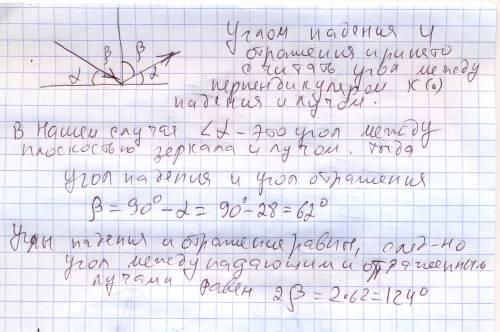 β β
α α
Углом падения и
отражения принято
считать угол между
перпендикуляром к (·)
падения и лучом.
В нашем случае ∠α - это угол между
плоскостью зеркала и лучом. Тогда
угол падения и угол отражения
β = 90° - α = 90° - 28 = 62°
Углы падения и отражения равны, след-но
угол между падающим и отраженным
лучами равен 2β = 2·62 = 124°